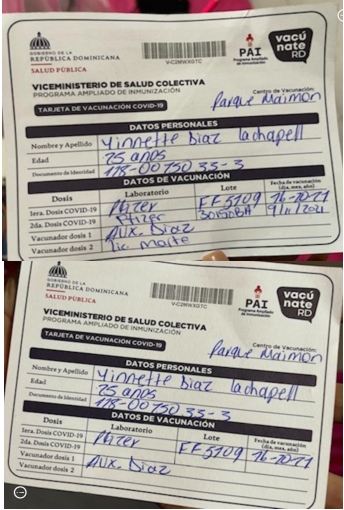 GOBIERNO DE LA
REPÚBLICA DOMINICANA
SALUD PÚBLICA
V-C2MWXGTC
PAI
Programa Ampliado
de Inmunización
vacú
nate
RD
VICEMINISTERIO DE SALUD COLECTIVA
PROGRAMA AMPLIADO DE INMUNIZACIÓN
Centro de Vacunación:
TARJETA DE VACUNACIÓN COVID-19
Parque Maimon
DATOS PERSONALES
Nombre y Apellido Yinnette Diaz lachapell
Edad 25 años
Documento de Identidad
DATOS DE VACUNACIÓN
Dosis Laboratorio Lote Fecha de vacunación
(día, mes, año)
1era. Dosis COVID-19 Pfizer FF5109 16-10-21
2da. Dosis COVID-19 Pfizer 9/11/2021
Vacunador dosis 1 Aux. Diaz
Vacunador dosis 2 Lic.
GOBIERNO DE LA
REPÚBLICA DOMINICANA
SALUD PÚBLICA
V-C2MWXGTC
PAI
Programa Ampliado
de Inmunización
vacú
nate
RD
VICEMINISTERIO DE SALUD COLECTIVA
PROGRAMA AMPLIADO DE INMUNIZACIÓN
Centro de Vacunación:
TARJETA DE VACUNACIÓN COVID-19
Parque Maimon
DATOS PERSONALES
Nombre y Apellido Yinnette Diaz lachapell
Edad 25 años
Documento de Identidad
DATOS DE VACUNACIÓN
Dosis Laboratorio Lote Fecha de vacunación
(día, mes, año)
1era. Dosis COVID-19 Pfizer FF5109 16-10-21
2da. Dosis COVID-19
Vacunador dosis 1 Aux. Diaz
Vacunador dosis 2